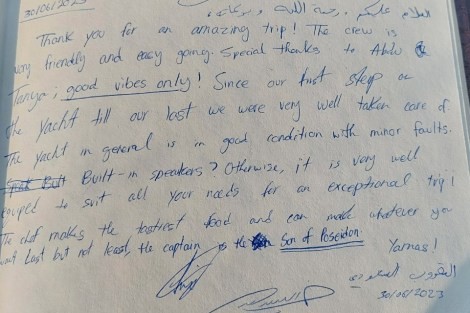 30/06/2023
السلام عليكم ورحمة الله وبركاته،
Thank you for an amazing trip! The crew is
very friendly and easy going. Special thanks to Abdu &
Tanya, good vibes only! Since our first step on
the Yacht till our last we were very well taken care of.
The Yacht in general is in good condition with minor faults.
Built-in speakers? Otherwise, it is very well
equiped to suit all your needs for an exceptional trip!
The chef makes the tastiest food and can make whatever you
want Last but not least, the captain is the Son of Poseidon.
Yamas!
30/06/2023